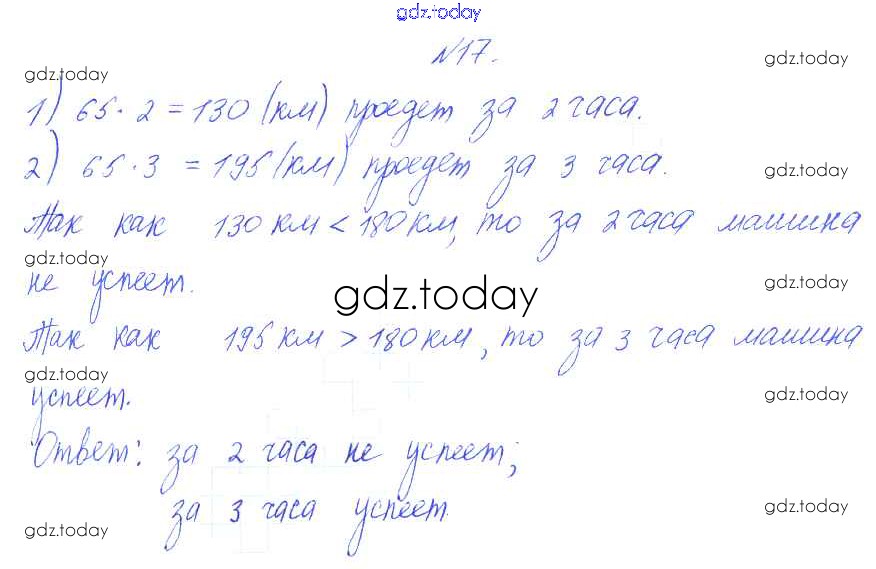 gdz.today
№17.
gdz.today gdz.today
1) 65·2 = 130 (км) проедет за 2 часа.
2) 65·3 = 195 (км) проедет за 3 часа.
gdz.today
Так как 130 км < 180 км, то за 2 часа машина
gdz.today
не успеет.
gdz.today
gdz.today
Так как 195 км > 180 км, то за 3 часа машина
gdz.today
успеет.
gdz.today
Ответ: за 2 часа не успеет;
за 3 часа успеет.
gdz.today
gdz.today